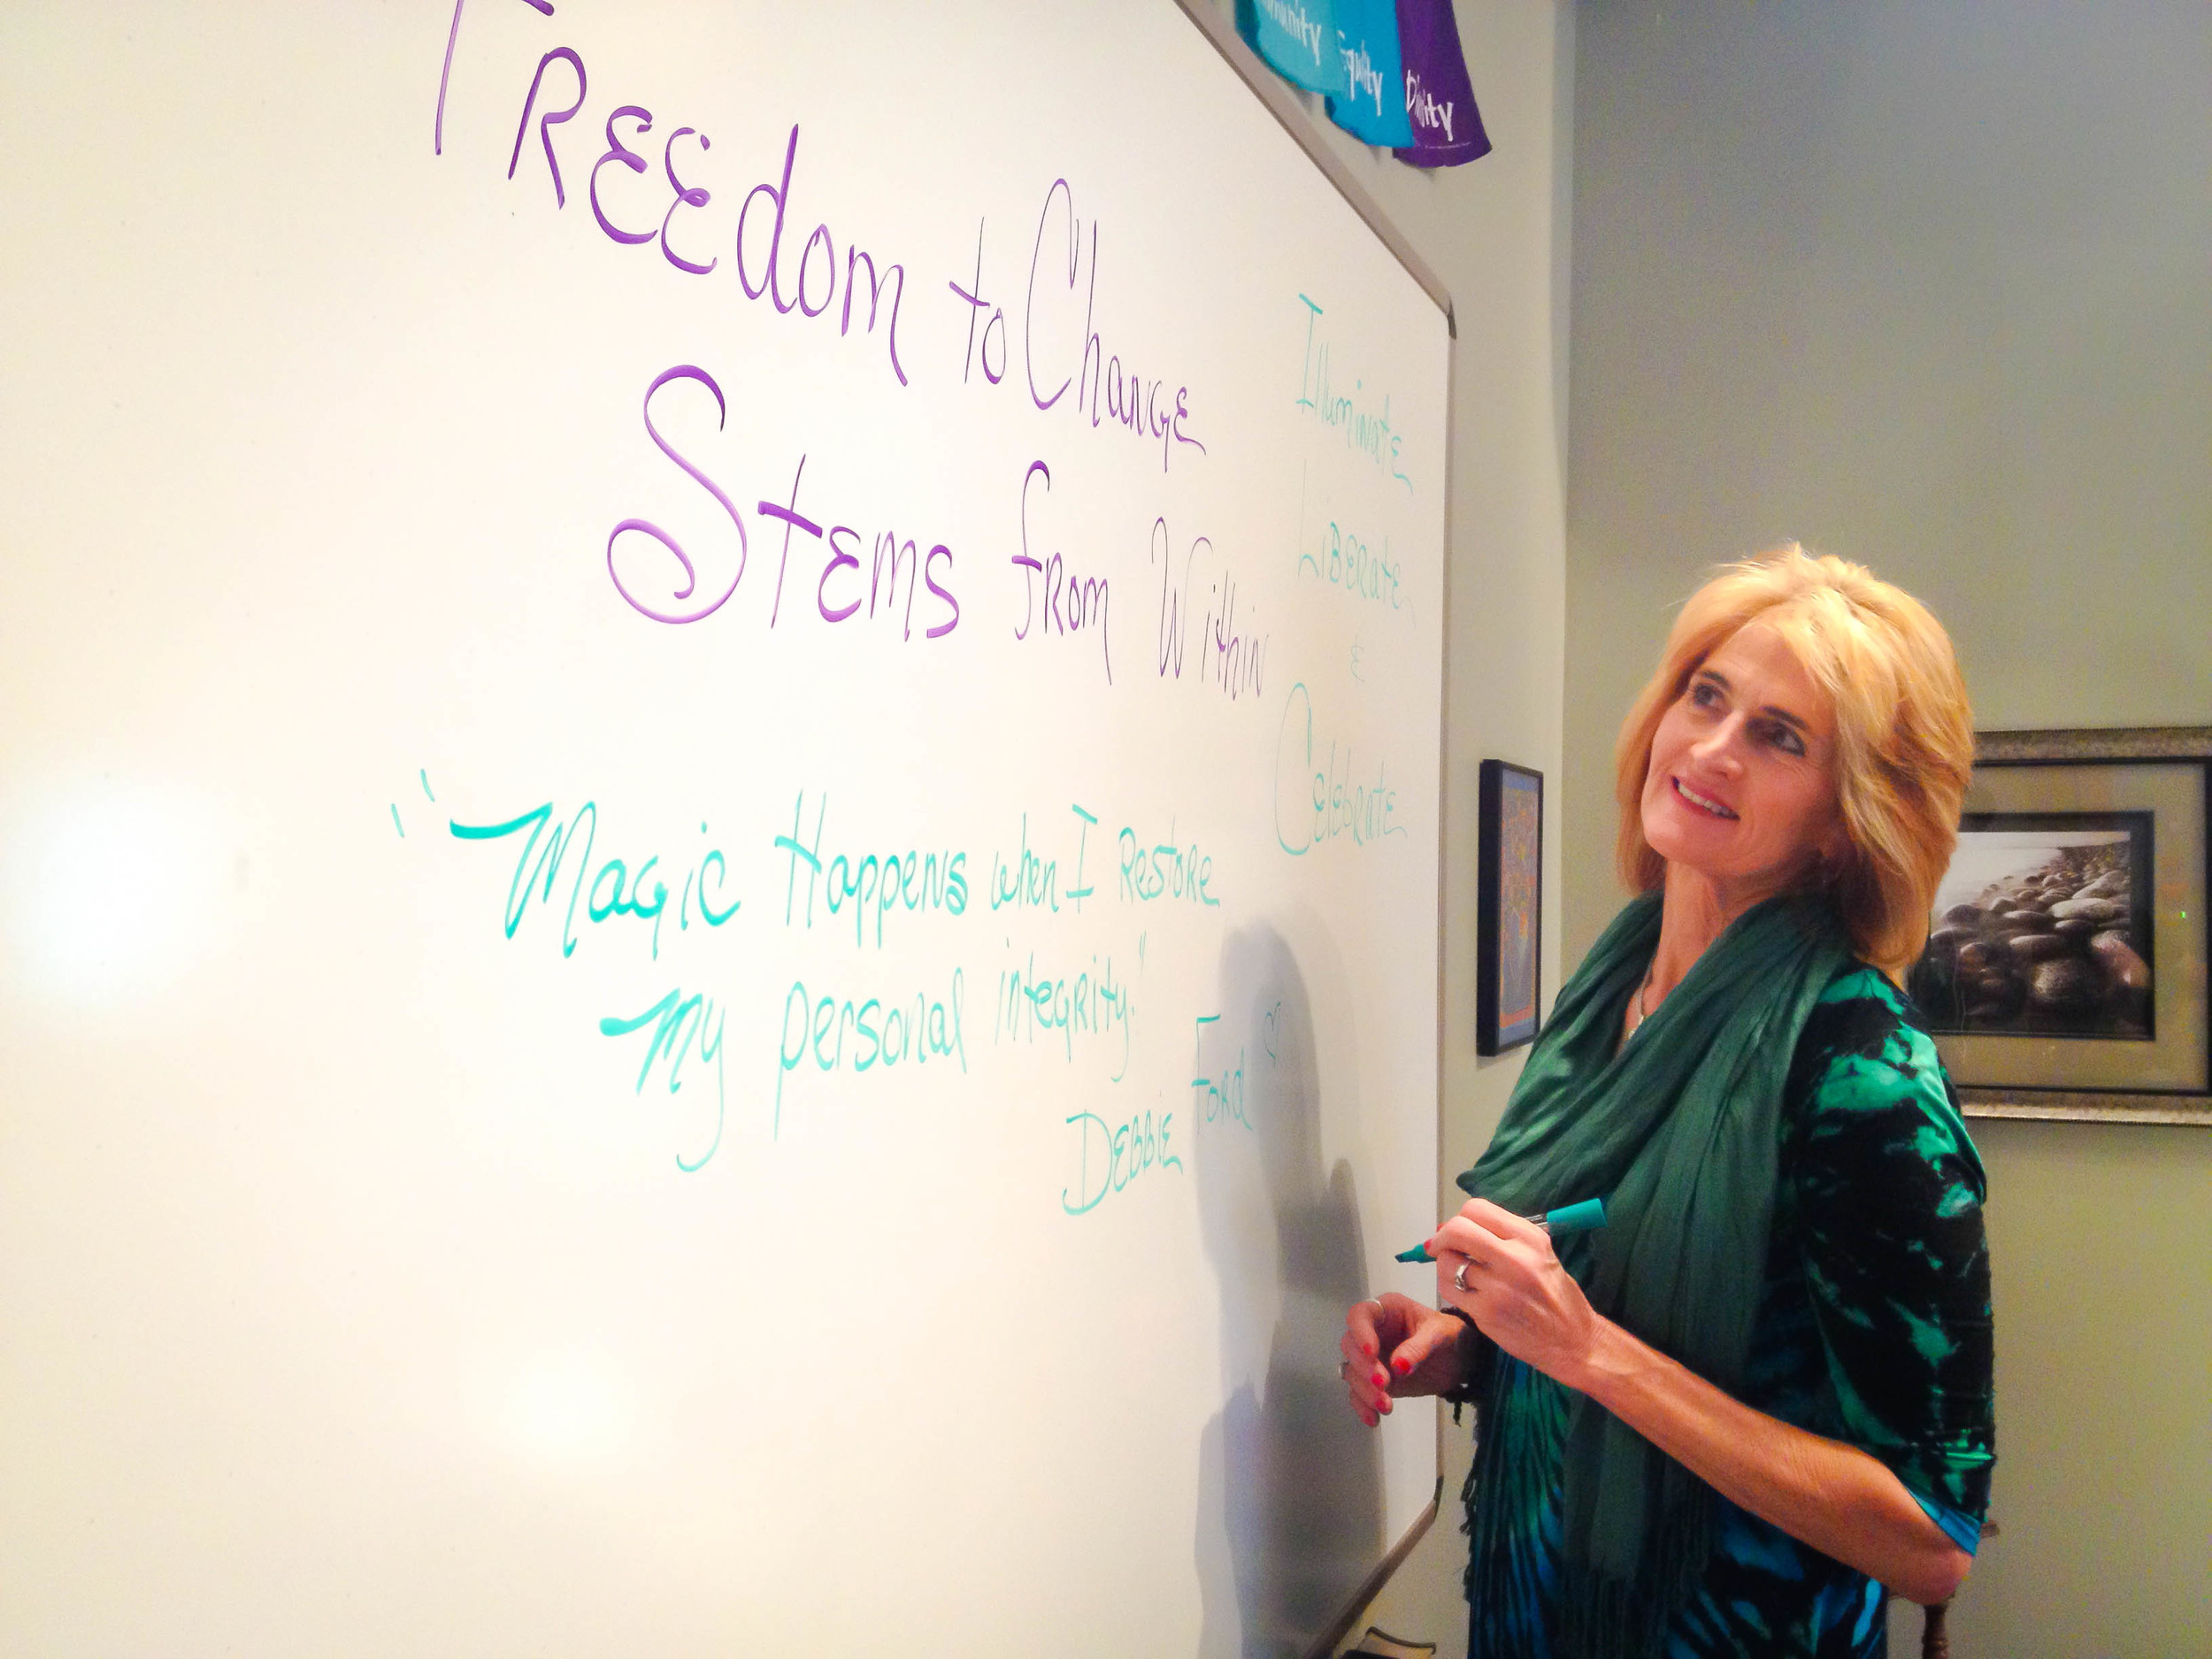 Equity
FREEdom to Change
Stems from Within
Illuminate
Liberate
&
Celebrate
"Magic Happens when I Restore
my personal integrity."
Debbie Ford